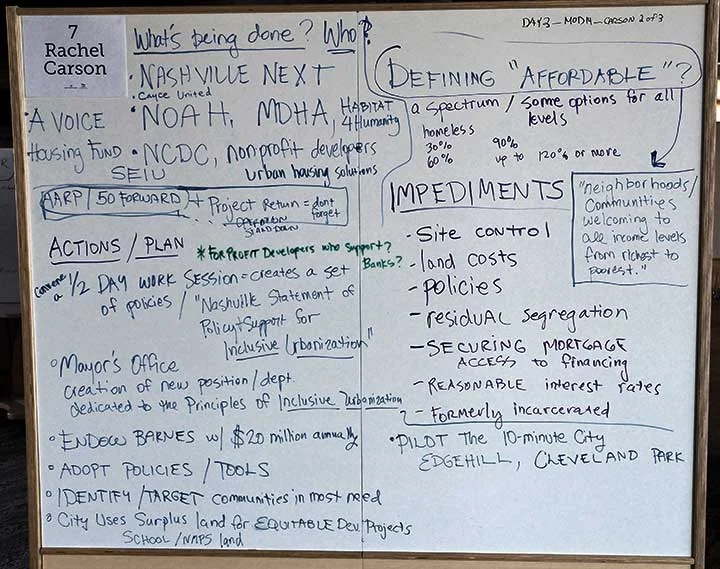 7
Rachel
Carson
What's being done? Who?
• NASHVILLE NEXT
• Cayce United
• A VOICE
• NOAH, MDHA, HABITAT
4 Humanity
Housing Fund • NCDC, nonprofit developers
SEIU
urban housing solutions
AARP / 50 FORWARD + Project Return = dont
forget
ACTIONS / PLAN
* FOR PROFIT Developers who support?
Banks?
Convene
a 1/2 DAY WORK SESSION = creates a set
of policies / "Nashville Statement of
Policy + Support for
Inclusive Urbanization"
• Mayor's Office
creation of new position/dept.
dedicated to the Principles of Inclusive Urbanization
• ENDOW BARNES w/ $20 million annually
• ADOPT POLICIES / TOOLS
• IDENTIFY / TARGET communities in most need
• City Uses Surplus land for EQUITABLE Dev. Projects
SCHOOL / NAPS land
DAY 3 - MODA - CARSON 2 of 3
DEFINING "AFFORDABLE"?
a spectrum / some options for all
levels
homeless
30%
60%
90%
up to 120% or more
"neighborhoods/
Communities
welcoming to
all income levels
from richest to
poorest."
IMPEDIMENTS
- Site control
- land costs
- policies
- residUAL segregation
- SECURING MORTGAGE
ACCESS to financing
- REASONABLE interest rates
- Formerly incarcerated
• PILOT The 10-minute City
EDGEHILL, CLEVELAND PARK